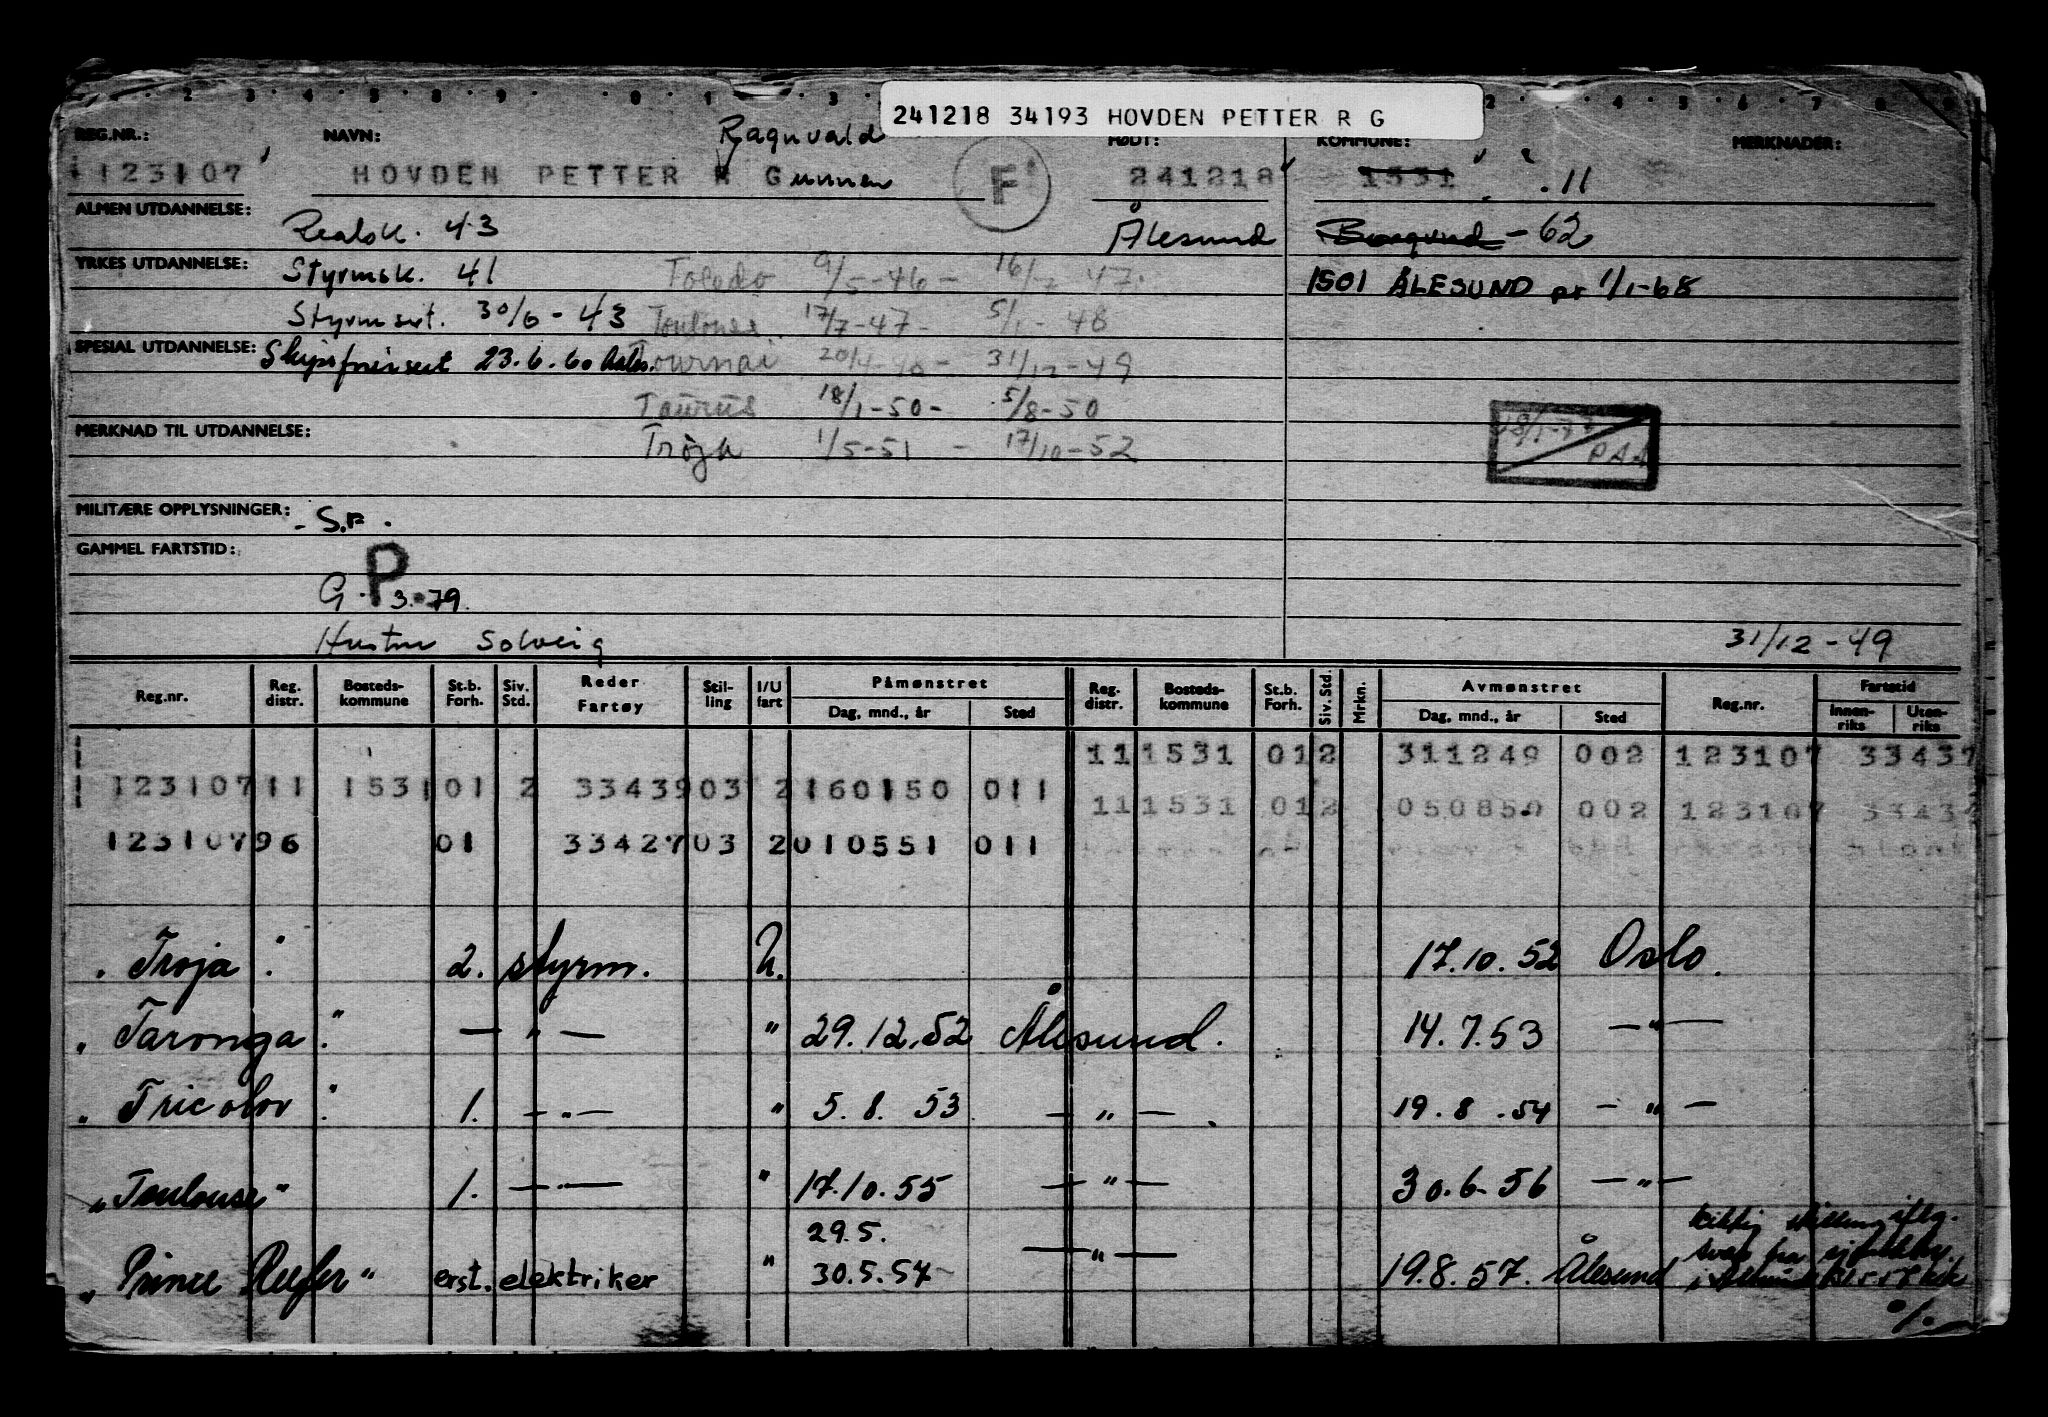 241218 34193 HOVDEN PETTER R G
REG.NR.: NAVN: Ragnvald FØDT: KOMMUNE: MERKNADER:
123107 HOVDEN PETTER R Gunnar F 241218 1531 .11
ALMEN UTDANNELSE: Realsk. 43 Ålesund Borgund - 62
YRKES UTDANNELSE: Styrmsk. 41 Toledo 9/5-46 - 16/7 47. 1501 ÅLESUND pr 1/1-68
Styrmsert. 30/6 - 43 Toulouse 17/7-47- 5/1-48
SPESIAL UTDANNELSE: Skipsførersert 23.6.60 Aales. Tournai 31/12-49
Taurus 18/1-50- 5/8-50
MERKNAD TIL UTDANNELSE: Troja 1/5-51 - 17/10-52 PAA
MILITÆRE OPPLYSNINGER: - S.F.
GAMMEL FARTSTID:
G. P 3.79.
Hustru Solveig 31/12-49
Reg.nr. Reg. distr. Bosteds- kommune St.b. Forh. Siv. Std. Reder Fartøy Stil- ling I/U fart Påmønstret Dag, mnd., år Sted Reg. distr. Bosteds- kommune St.b. Forh. Siv. Std. Mrkn. Avmønstret Dag, mnd., år Sted Reg.nr. Fartstid Innen- riks Uten- riks
11 1531 01 2 311249 002 123107 33437
123107 11 1531 01 2 33439 03 2 160150 011
11 1531 01 2 050850 002 123107 3343
123107 96 01 33427 03 2 010551 011
" Troja " 2. styrm. U. 17.10.52 Oslo.
" Taronga " — " — " 29.12.52 Ålesund. 14.7.53 — " —
" Tricolor " 1. — " — " 5.8.53 — " — 19.8.54 — " —
" Toulouse " 1. — " — " 17.10.55 — " — 30.6.56 — " —
29.5.
" Prince Reefer " erst. elektriker " 30.5.57 — " — 19.8.57. Ålesund
%.